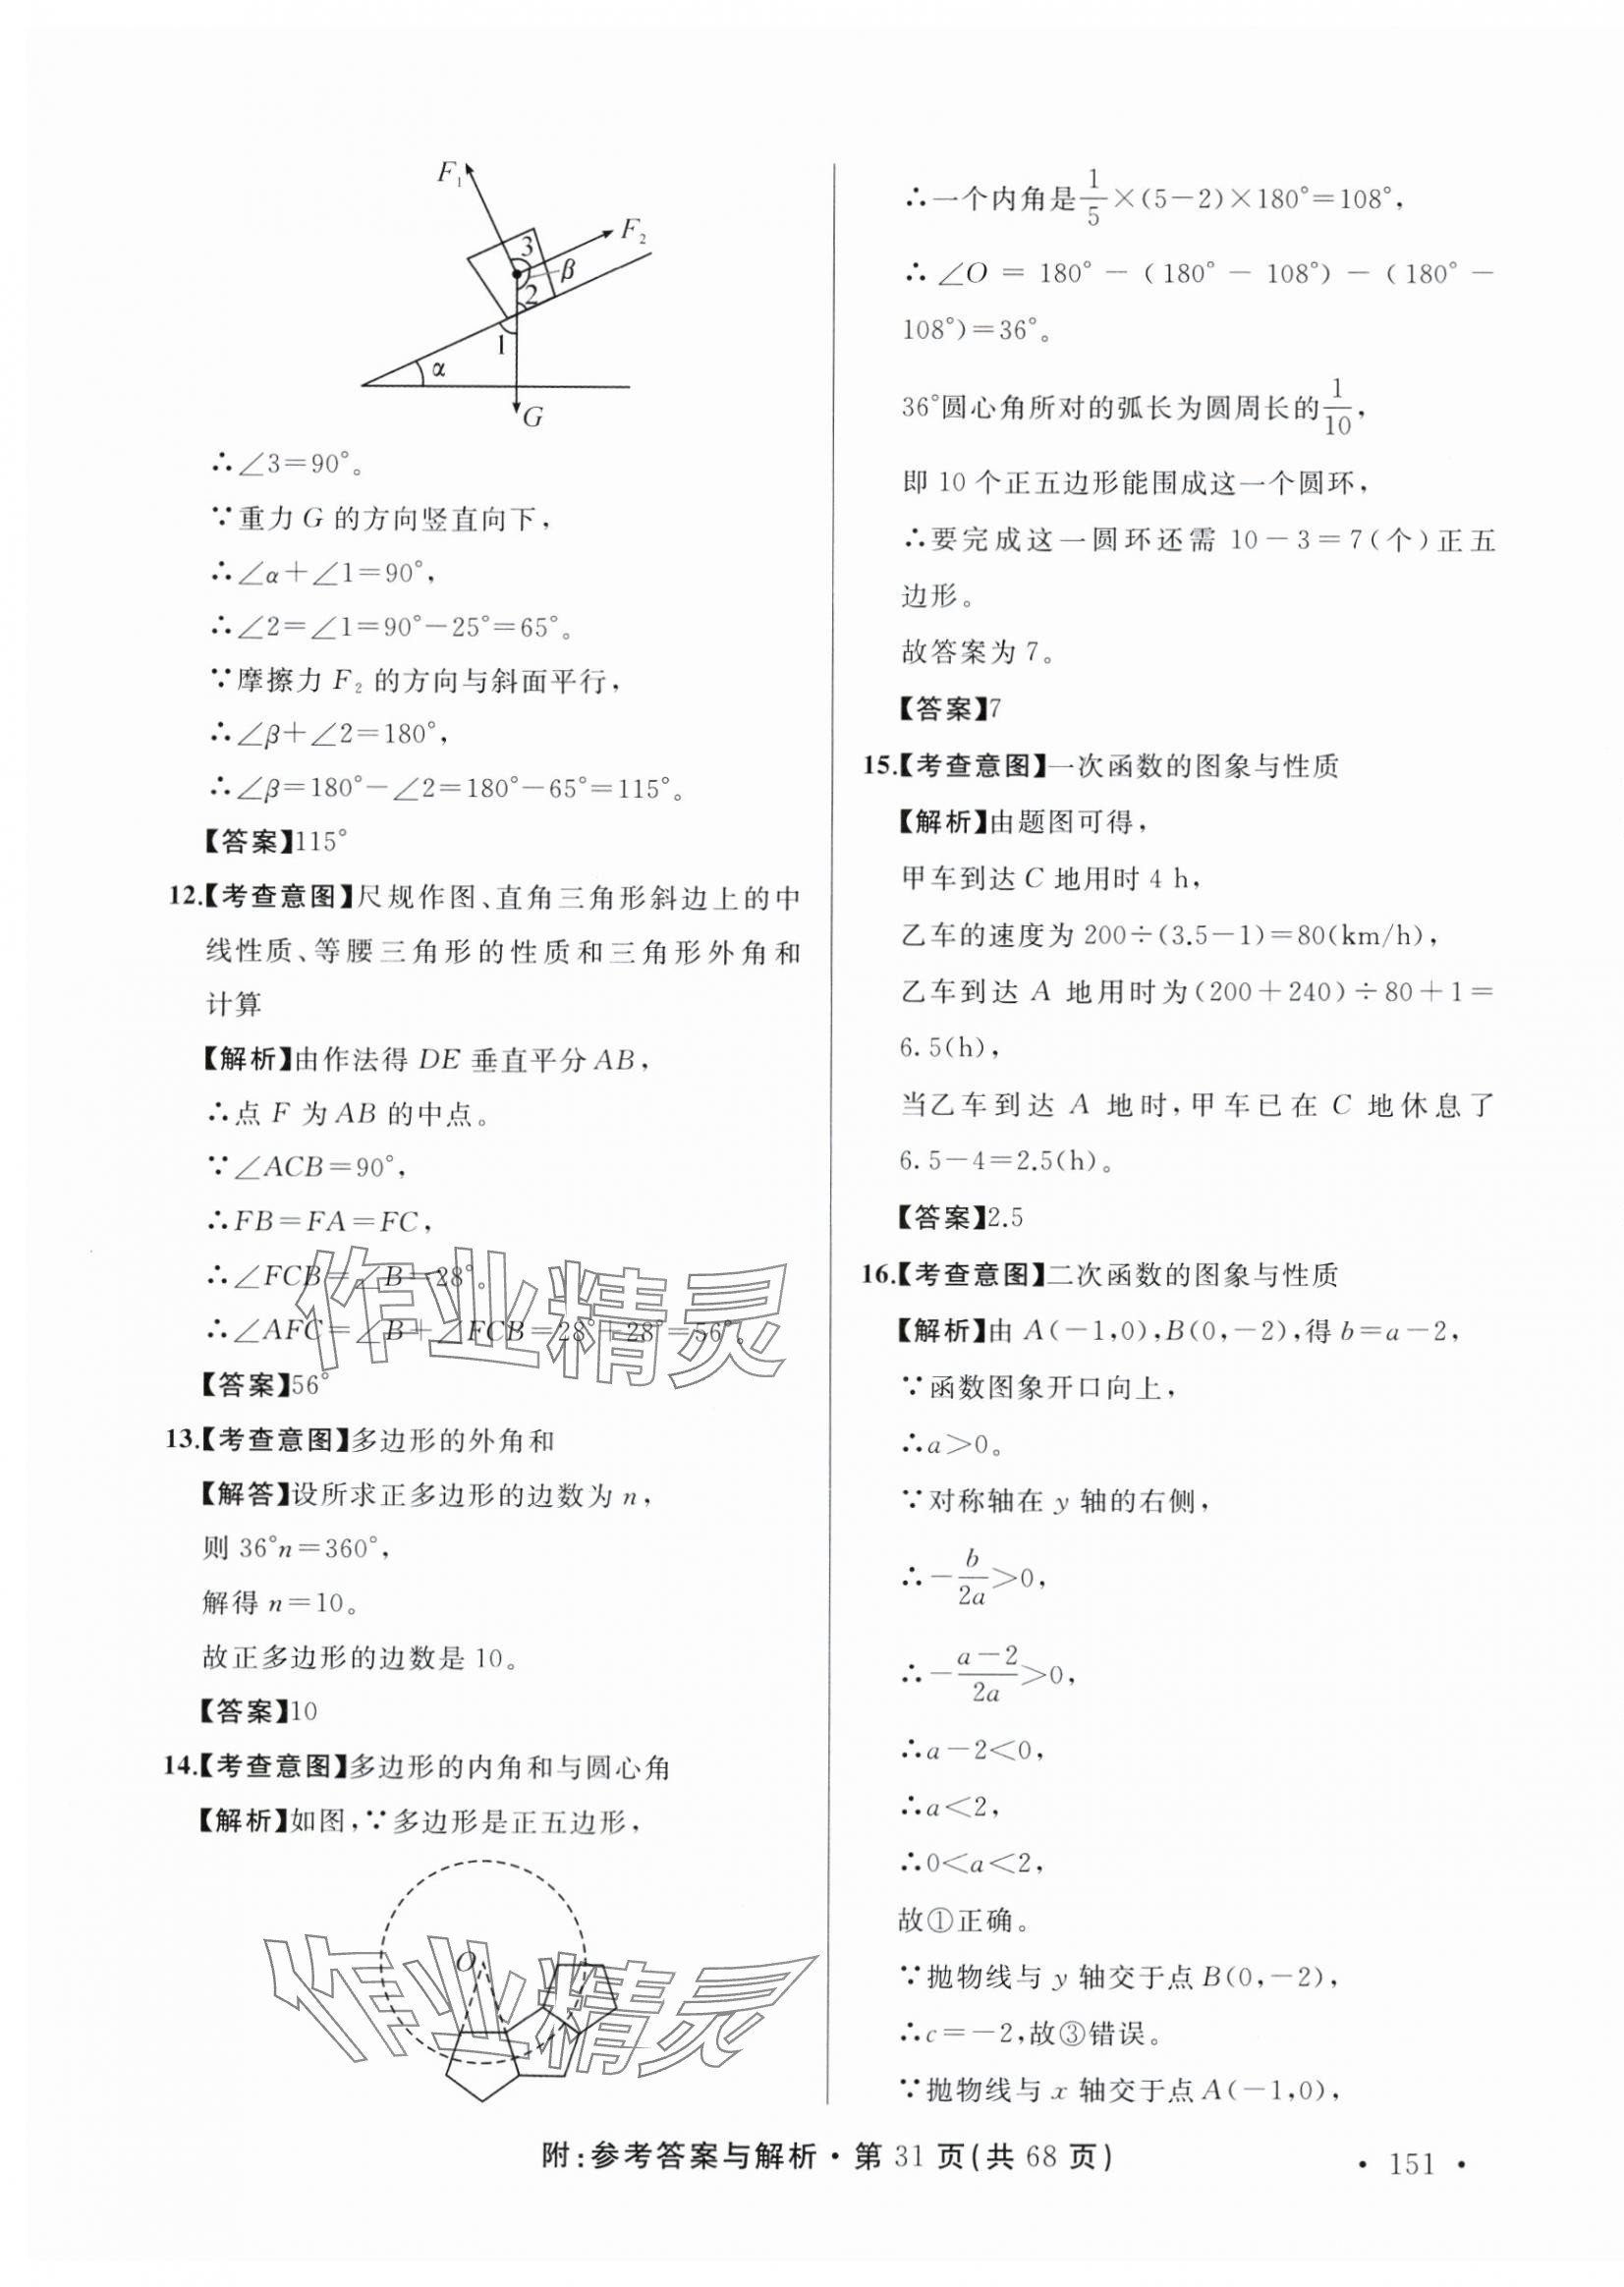 F₁
F₂
3
β
2
1
α
G
∴∠3=90°。
∵重力 G 的方向竖直向下，
∴∠α+∠1=90°，
∴∠2=∠1=90°-25°=65°。
∵摩擦力 F₂ 的方向与斜面平行，
∴∠β+∠2=180°，
∴∠β=180°-∠2=180°-65°=115°。
【答案】115°
12.【考查意图】尺规作图、直角三角形斜边上的中
线性质、等腰三角形的性质和三角形外角和
计算
【解析】由作法得 DE 垂直平分 AB，
∴点 F 为 AB 的中点。
∵∠ACB=90°，
∴FB=FA=FC，
∴∠FCB=∠B=28°。
∴∠AFC=∠B+∠FCB=28°+28°=56°。
【答案】56°
13.【考查意图】多边形的外角和
【解答】设所求正多边形的边数为 n，
则 36°n=360°，
解得 n=10。
故正多边形的边数是 10。
【答案】10
14.【考查意图】多边形的内角和与圆心角
【解析】如图，∵多边形是正五边形，
O
作业精灵
作业精灵
∴一个内角是1/5×(5-2)×180°=108°，
∴∠O=180°-(180°-108°)-(180°-
108°)=36°。
36°圆心角所对的弧长为圆周长的1/10，
即 10 个正五边形能围成这一个圆环，
∴要完成这一圆环还需 10-3=7(个)正五
边形。
故答案为 7。
【答案】7
15.【考查意图】一次函数的图象与性质
【解析】由题图可得，
甲车到达 C 地用时 4 h，
乙车的速度为 200÷(3.5-1)=80(km/h)，
乙车到达 A 地用时为(200+240)÷80+1=
6.5(h)，
当乙车到达 A 地时，甲车已在 C 地休息了
6.5-4=2.5(h)。
【答案】2.5
16.【考查意图】二次函数的图象与性质
【解析】由 A(-1,0),B(0,-2),得 b=a-2，
∵函数图象开口向上，
∴a>0。
∵对称轴在 y 轴的右侧，
∴-b/2a>0，
∴-(a-2)/2a>0，
∴a-2<0，
∴a<2，
∴0<a<2，
故①正确。
∵抛物线与 y 轴交于点 B(0,-2)，
∴c=-2,故③错误。
∵抛物线与 x 轴交于点 A(-1,0)，
附：参考答案与解析·第 31 页(共 68 页)
· 151 ·